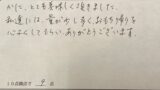 かに、とても美味しく頂きました。
私達には、量が少し多く、おもち帰りを
心よくしてもらい、ありがとうございます。
10点満点で 9 点